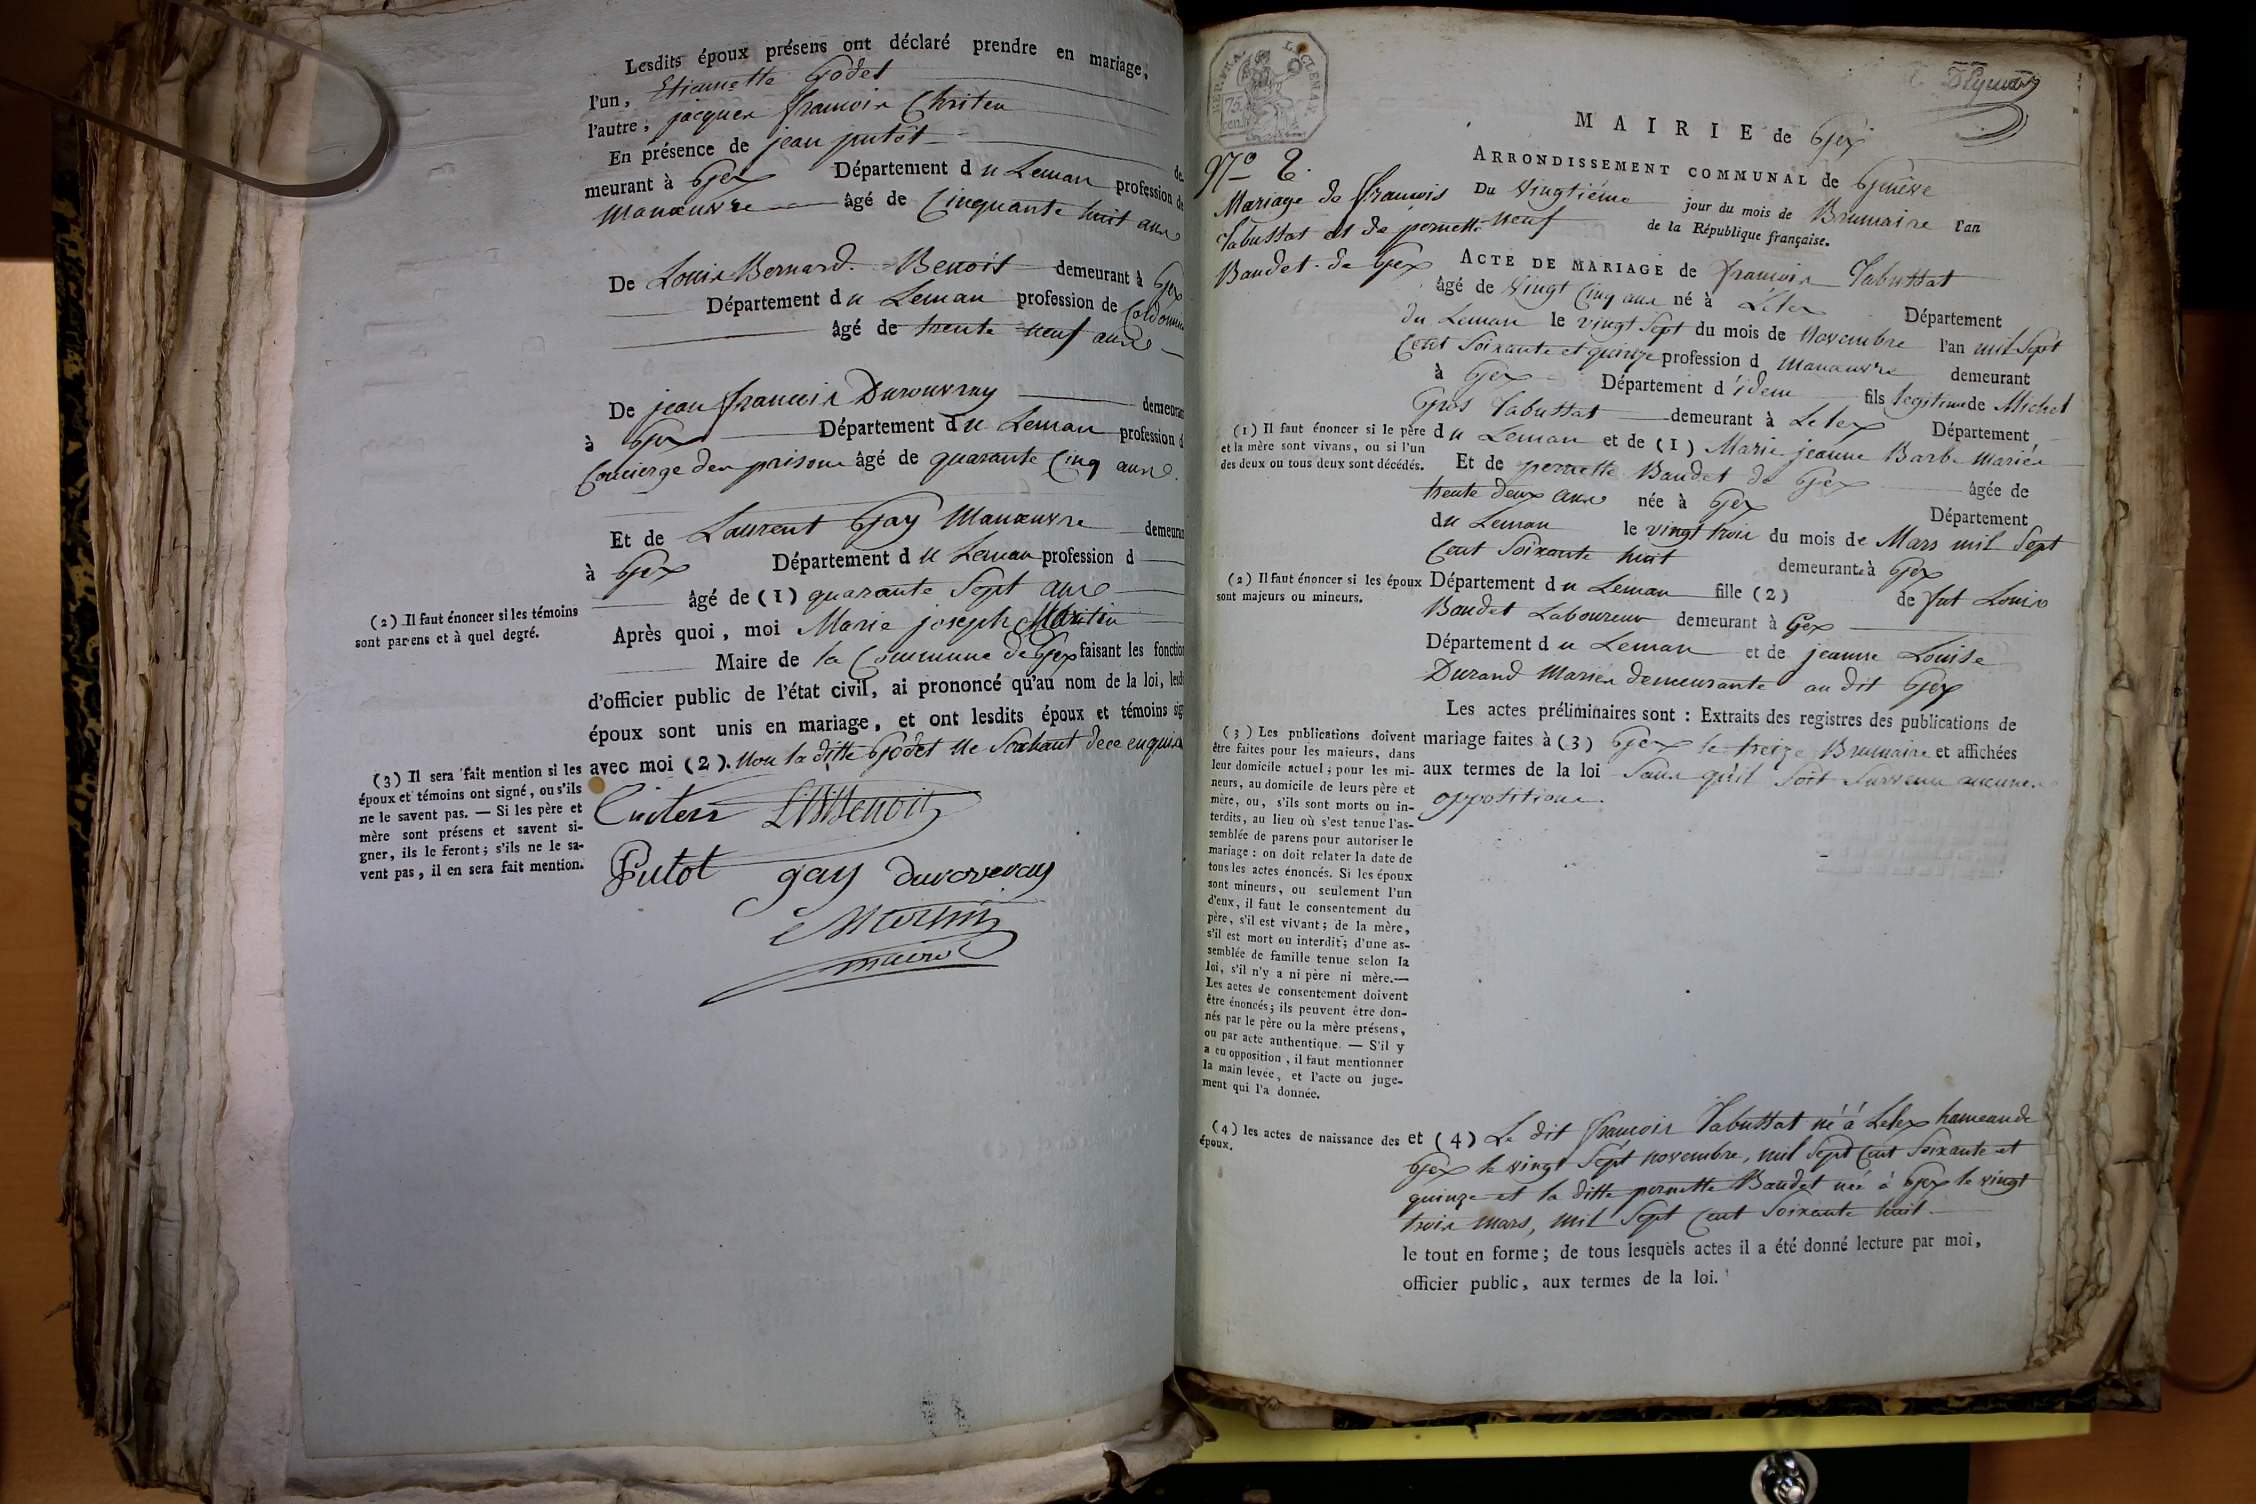 Lesdits époux présens ont déclaré prendre en mariage,
l'un, Etiennette Godet
l'autre, jacques francois Christen
En présence de jean putot de-
meurant à Gex Département du Leman profession de
Manœuvre âgé de Cinquante huit ans
De Louis Bernard Benoit demeurant à Gex
Département du Leman profession de
âgé de trente neuf ans
De jean francois Durouvray demeurant
à Gex Département du Leman profession d
Concierge des prisons âgé de quarante Cinq ans.
Et de Laurent Gay Manœuvre demeurant
à Gex Département du Leman profession d
âgé de (1) quarante Sept ans
(2) Il faut énoncer si les témoins
sont parens et à quel degré.
Après quoi, moi Marie joseph Martin
Maire de la Commune de Gex faisant les fonction
d'officier public de l'état civil, ai prononcé qu'au nom de la loi, lesd
époux sont unis en mariage, et ont lesdits époux et témoins sig
avec moi (2). Non la ditte Godet ne Sachant de ce enquise
(3) Il sera fait mention si les
époux et témoins ont signé, ou s'ils
ne le savent pas. — Si les père et
mère sont présens et savent si-
gner, ils le feront; s'ils ne le sa-
vent pas, il en sera fait mention.
LBBenoit
Putot gay durovray
Martin
maire
REP. FRA.
75
cen.
MAIRIE de Gex
ARRONDISSEMENT COMMUNAL de Genève
N° 2.
Mariage de francois
Tabuttat et de pernette
Baudet de Gex
Du Vingtiéme jour du mois de Brumaire l'an
neuf de la République française.
ACTE DE MARIAGE de francois Tabuttat
âgé de Vingt Cinq ans né à Lelex Département
du Leman le vingt Sept du mois de Novembre l'an mil Sept
Cent Soixante et quinze profession d Manœuvre demeurant
à Gex Département d'idem fils legitime de Michel
Gros Tabuttat demeurant à Lelex Département
(1) Il faut énoncer si le père
et la mère sont vivans, ou si l'un
des deux ou tous deux sont décédés.
du Leman et de (1) Marie jeanne Barbe Mariés
Et de pernette Baudet de Gex âgée de
trente deux ans née à Gex Département
du Leman le vingt trois du mois de Mars mil Sept
Cent Soixante huit demeurante à Gex
(2) Il faut énoncer si les époux
sont majeurs ou mineurs.
Département du Leman fille (2) de fut Louis
Baudet Laboureur demeurant à Gex
Département du Leman et de jeanne Louise
Durand Mariés demeurante au dit Gex
Les actes préliminaires sont : Extraits des registres des publications de
mariage faites à (3) Gex le treize Brumaire et affichées
aux termes de la loi Sans qu'il Soit Survenu aucunes
oppositions.
(3) Les publications doivent
être faites pour les majeurs, dans
leur domicile actuel; pour les mi-
neurs, au domicile de leurs père et
mère, ou, s'ils sont morts ou in-
terdits, au lieu où s'est tenue l'as-
semblée de parens pour autoriser le
mariage : on doit relater la date de
tous les actes énoncés. Si les époux
sont mineurs, ou seulement l'un
d'eux, il faut le consentement du
père, s'il est vivant; de la mère,
s'il est mort ou interdit; d'une as-
semblée de famille tenue selon la
loi, s'il n'y a ni père ni mère.—
Les actes de consentement doivent
être énoncés; ils peuvent être don-
nés par le père ou la mère présens,
ou par acte authentique. — S'il y
a eu opposition, il faut mentionner
la main levée, et l'acte ou juge-
ment qui l'a donnée.
(4) les actes de naissance des
époux.
et (4) Le dit francois Tabuttat né à Lelex hameau de
Gex le vingt Sept novembre, mil Sept Cent Soixante et
quinze et la ditte pernette Baudet née à Gex le vingt
trois mars, mil Sept Cent Soixante huit
le tout en forme; de tous lesquels actes il a été donné lecture par moi,
officier public, aux termes de la loi.